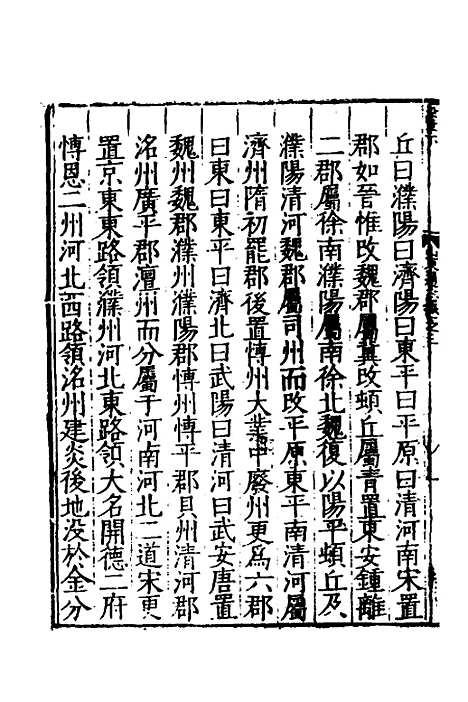 丘曰濮陽曰濟陽曰東平曰平原曰清河南宋置
郡如晉惟改魏郡屬冀改頓丘屬青置東安鍾離
二郡屬徐南濮陽屬南徐北魏復以陽平頓丘及
濮陽清河魏郡屬司州而改平原東平南清河屬
濟州隋初罷郡後置愽州大業中廢州更爲六郡
曰東曰東平曰濟北曰武陽曰清河曰武安唐置
魏州魏郡濮州濮陽郡愽州愽平郡貝州清河郡
洺州廣平郡澶州而分屬于河南河北二道宋更
置京東東路領濮州河北東路領大名開德二府
愽恩二州河北西路領洺州建炎後地没於金分